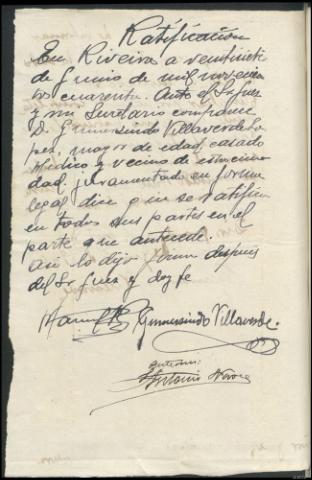 Ratificación
En Riveira a veintisiete
de Junio de mil novecien
tos cuarenta. Ante el Sr Juez
y mi Secretario comparece
D. Gumersindo Villaverde Lo
pez, mayor de edad, casado
Medico y vecino de esta ciu
dad, juramentado en forma
legal dice que se ratifica
en todas sus partes en el
parte que antecede.
Asi lo dijo firma despues
del Sr Juez y doy fe
Manuel Gumersindo Villaverde.
Antemi:
Antonio